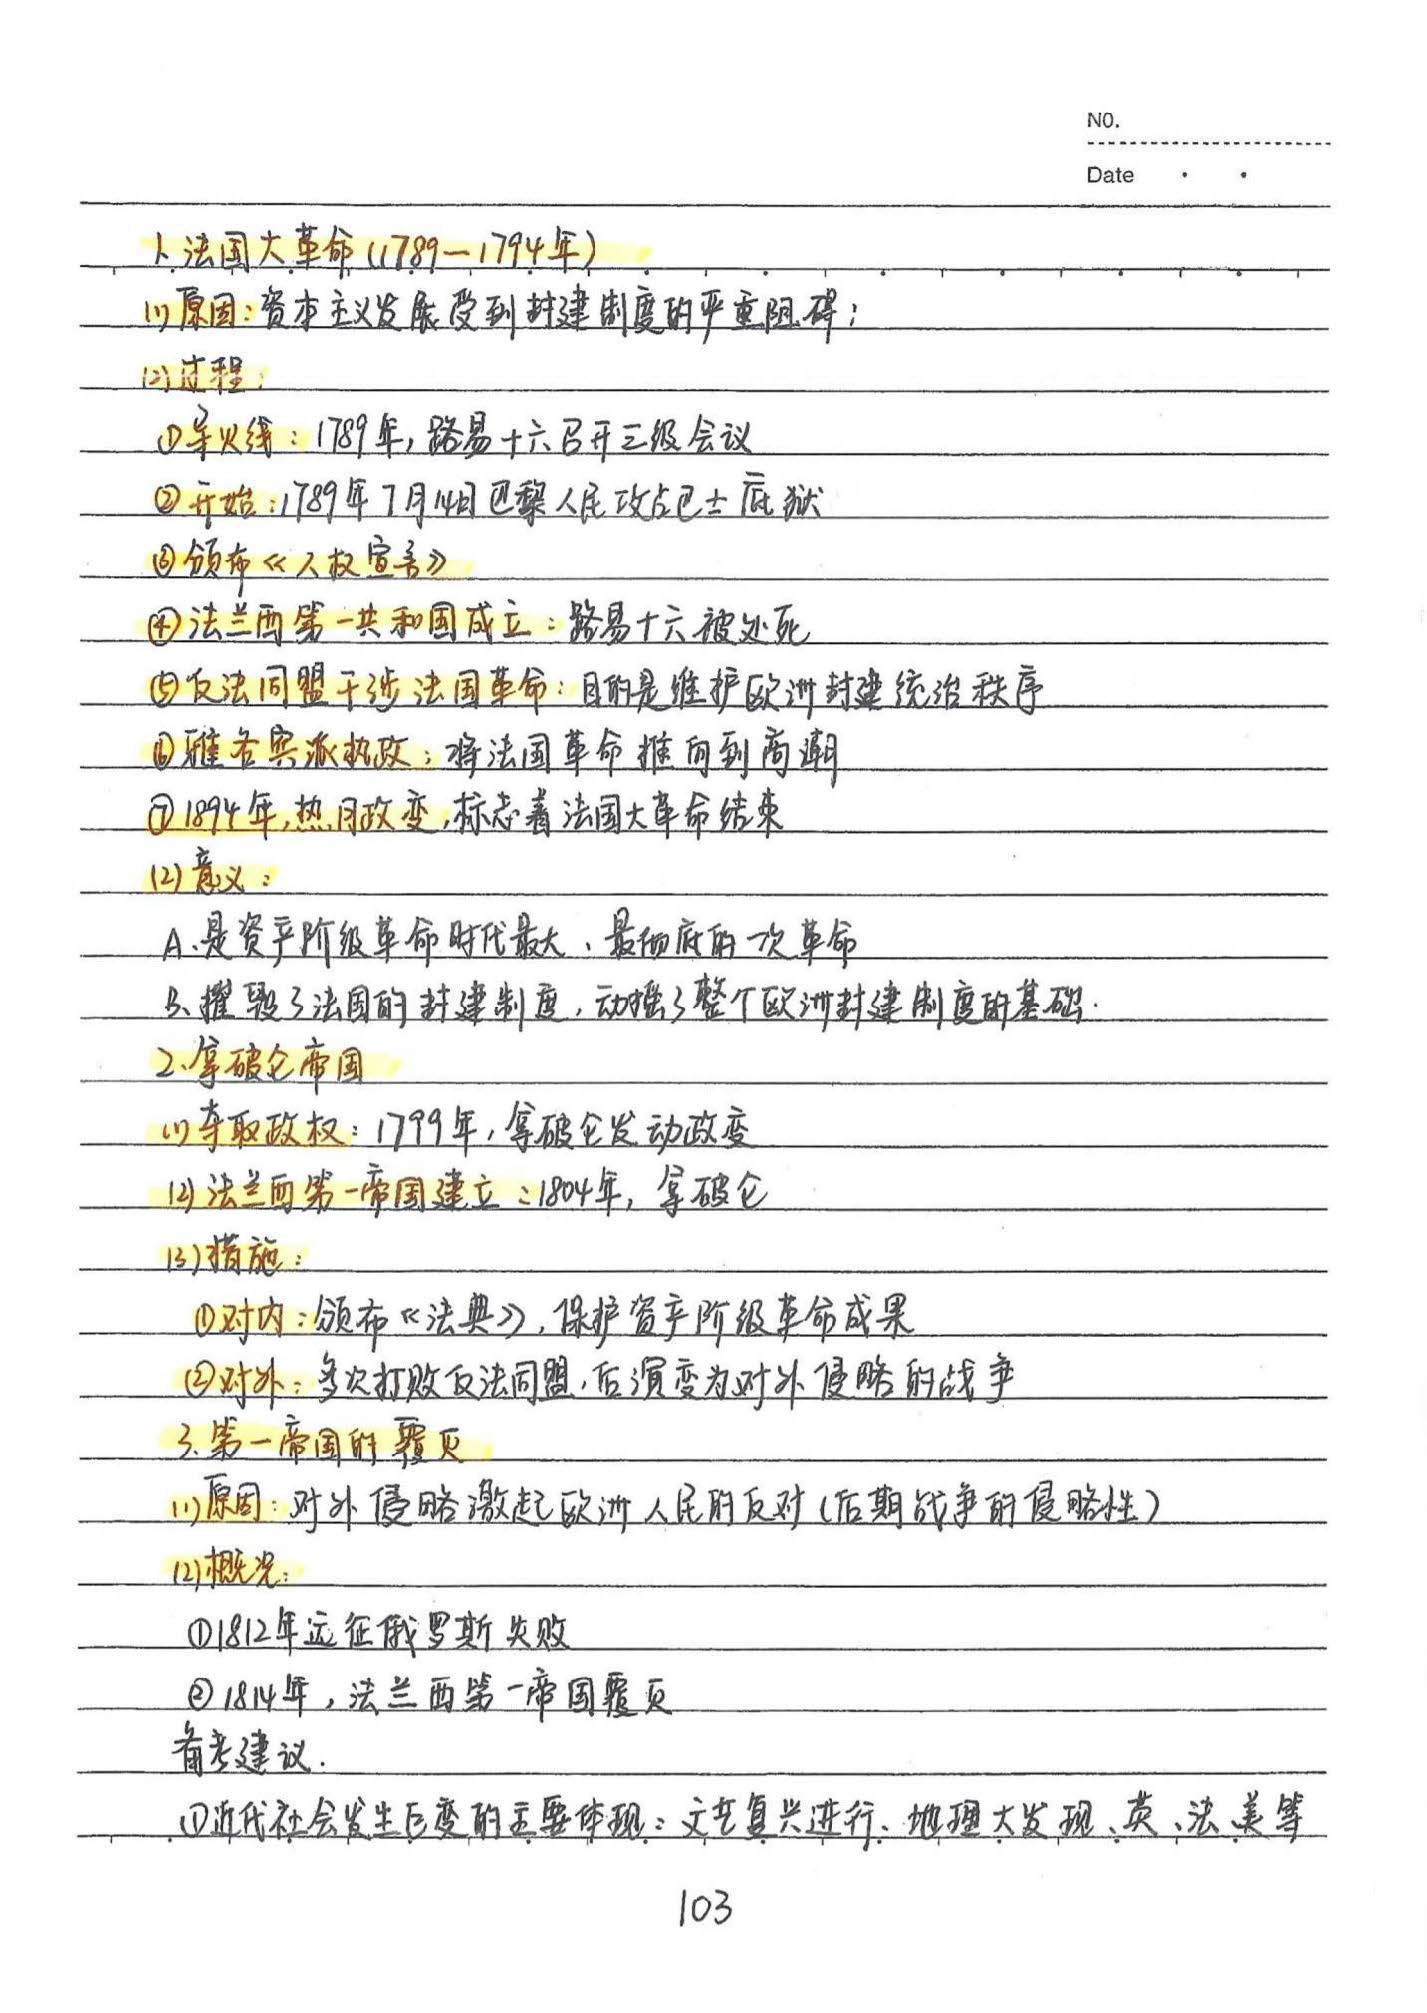 NO.
Date
1.法国大革命(1789—1794年)
(1)原因:资本主义发展受到封建制度的严重阻碍;
(2)过程:
①导火线:1789年,路易十六召开三级会议
②开始:1789年7月14日巴黎人民攻占巴士底狱
③颁布《人权宣言》
④法兰西第一共和国成立:路易十六被处死
⑤反法同盟干涉法国革命:目的是维护欧洲封建统治秩序
⑥雅各宾派执政:将法国革命推向到高潮
⑦1894年,热月政变,标志着法国大革命结束
(2)意义:
A、是资产阶级革命时代最大、最彻底的一次革命
B、摧毁了法国的封建制度,动摇了整个欧洲封建制度的基础.
2、拿破仑帝国
(1)夺取政权:1799年,拿破仑发动政变
(2)法兰西第一帝国建立:1804年,拿破仑
(3)措施:
①对内:颁布《法典》,保护资产阶级革命成果
②对外:多次打败反法同盟,后演变为对外侵略的战争
3.第一帝国的覆灭
(1)原因:对外侵略激起欧洲人民的反对(后期战争的侵略性)
(2)概况:
①1812年远征俄罗斯失败
②1814年,法兰西第一帝国覆灭
备考建议.
①近代社会发生巨变的主要体现:文艺复兴进行、地理大发现、英、法、美等
103